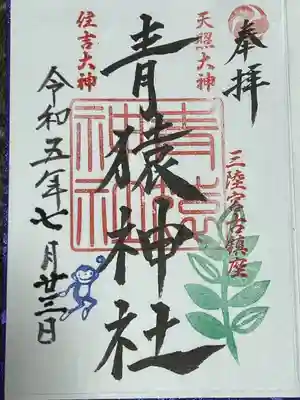 奉拝
天照大神
三陸宮古鎮座
青猿神社
青猿神社
住吉大神
令和五年七月廿三日